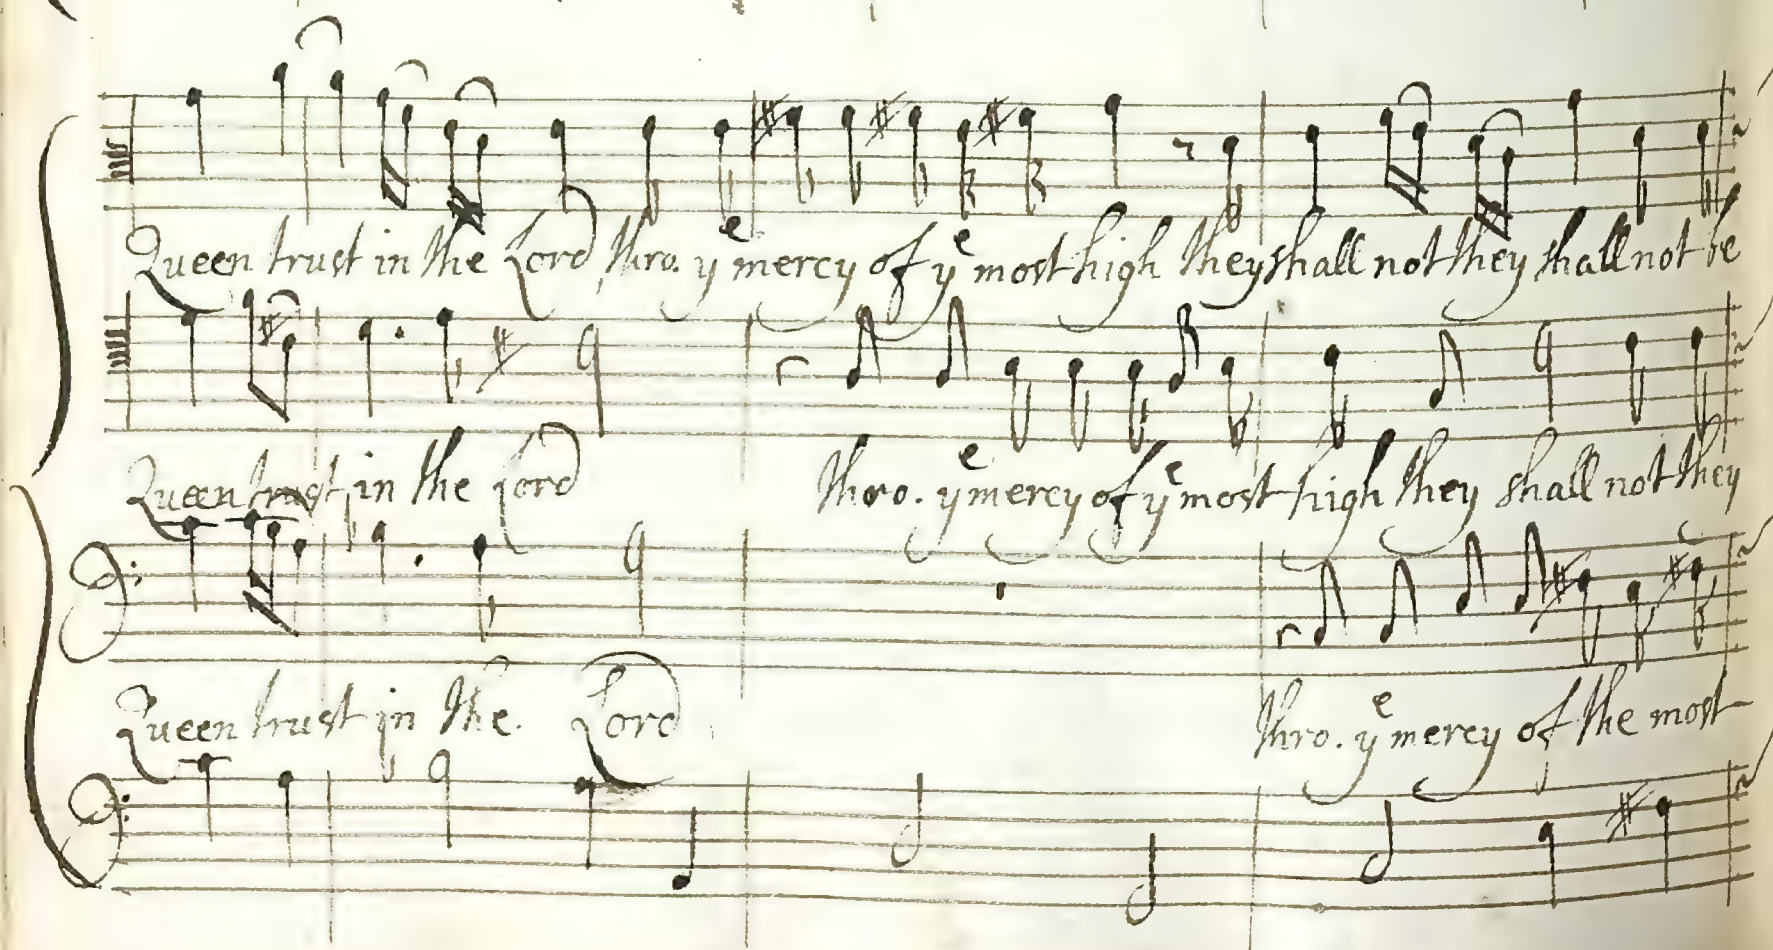 Queen trust in the Lord thro. yᵉ mercy of yᵉ most high they shall not they shall not be
Queen trust in the Lord thro. yᵉ mercy of yᵉ most high they shall not they
Queen trust in the. Lord thro. yᵉ mercy of the most